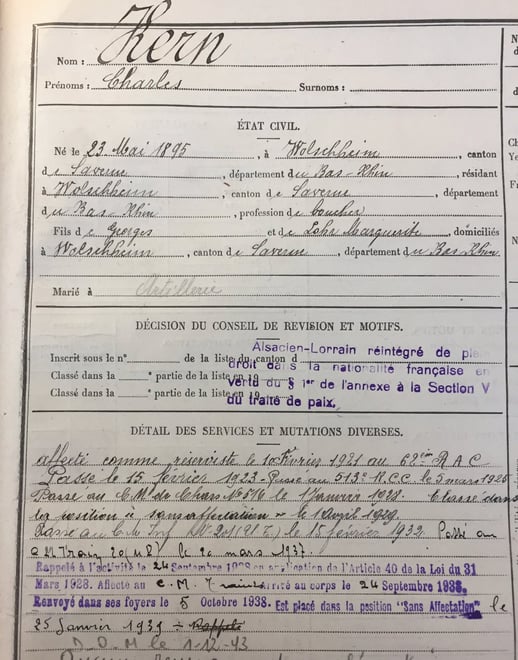 Nom : Kern
Prénoms : Charles Surnoms :
ÉTAT CIVIL.
Né le 23 Mai 1895 , à Wolschheim , canton
de Saverne , département du Bas-Rhin , résidant
à Wolschheim , canton de Saverne , département
du Bas-Rhin , profession de boucher
Fils de Georges et de Lehr Marguerite , domiciliés
à Wolschheim , canton de Saverne , département du Bas-Rhin
Marié à Artillerie
DÉCISION DU CONSEIL DE REVISION ET MOTIFS.
Alsacien-Lorrain réintégré de plein
Inscrit sous le n° de la liste du canton d
droit dans la nationalité française en
Classé dans la partie de la liste en 19
vertu du § 1er de l'annexe à la Section V
Classé dans la partie de la liste en 19
du traité de paix.
DÉTAIL DES SERVICES ET MUTATIONS DIVERSES.
affecté comme réserviste le 10 Février 1921 au 62ème R A C
Passé le 15 février 1923 - Passé au 513e R.C.C. le 5 mars 1925
Passé au C.M. de Chars N° 516 le 1 janvier 1928. Classé dans
la position "sans affectation" le 1 Avril 1929.
Passé au le 15 février 1932. Passé au
C M Train 20 le 20 mars 1937.
Rappelé à l'activité le 24 Septembre 1938 en application de l'Article 40 de la Loi du 31
Mars 1928. Affecté au C. M. Train Arrivé au corps le 24 Septembre 1938.
Renvoyé dans ses foyers le 5 Octobre 1938. Est placé dans la position "Sans Affectation" le
25 Janvier 1939 - Rappelé
D. O. M le 1-12-43